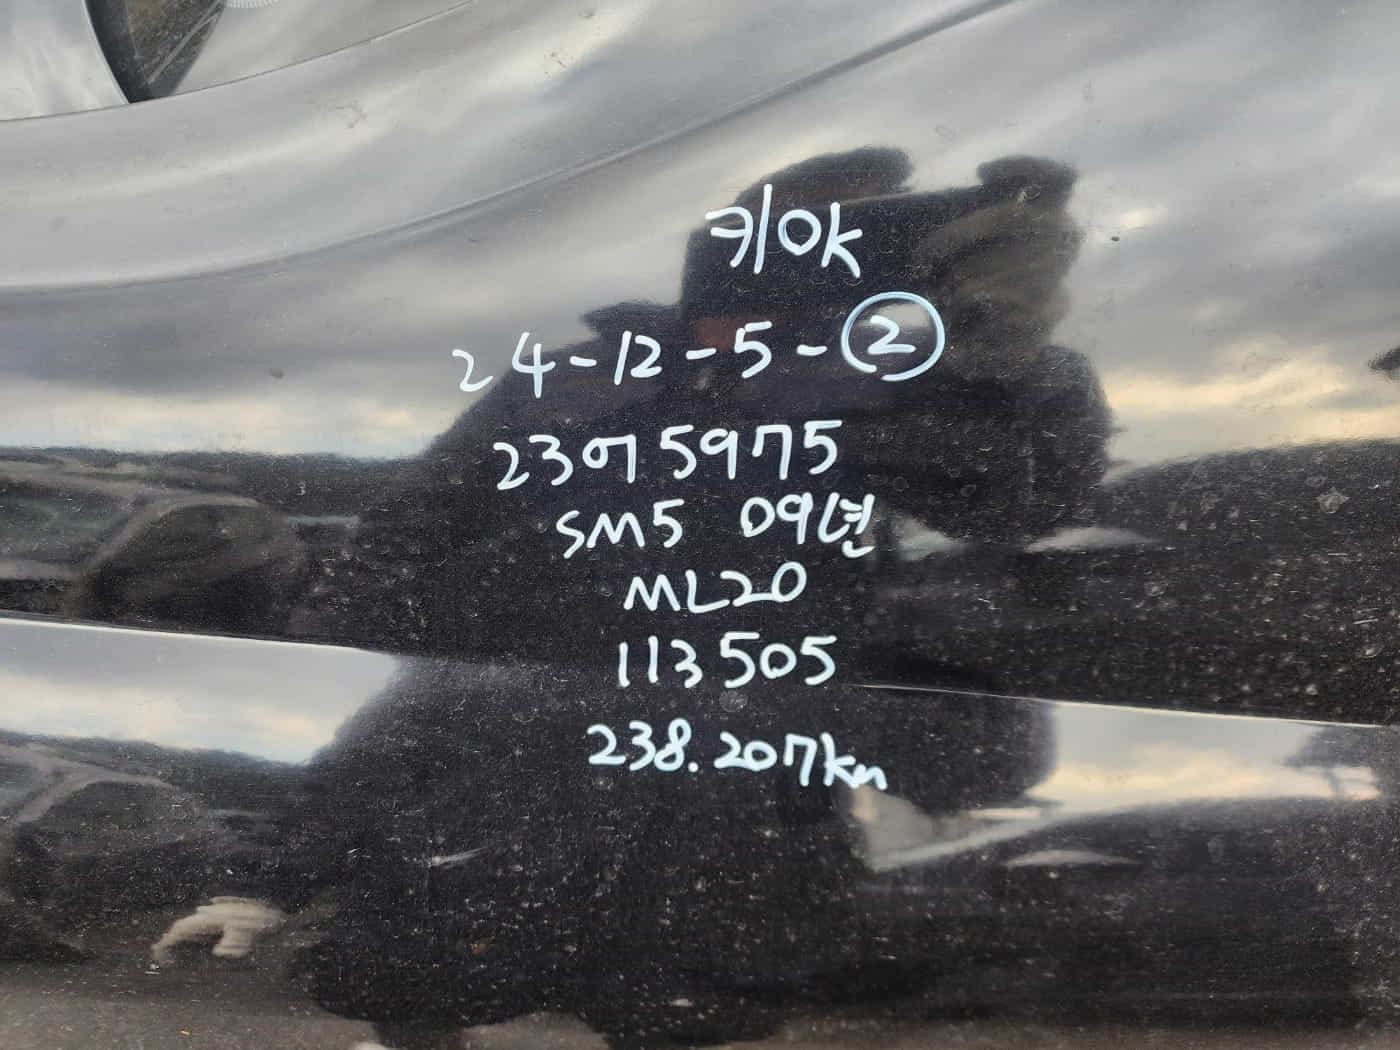 키OK
24-12-5-②
23어5975
SM5 09년
ML20
113505
238.207km